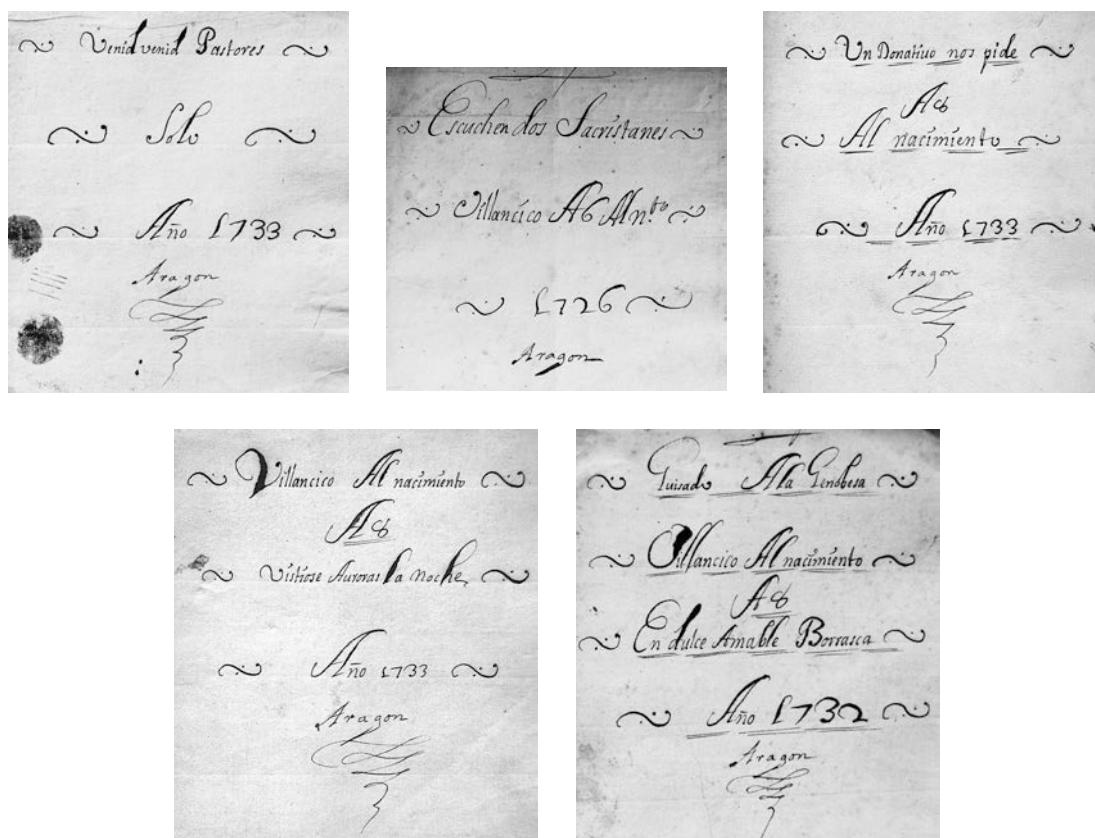 Venid venid Pastores
Solo
Año 1733
Aragon
Escuchen dos Sacristanes
Villancico A6 Al n.to
1726
Aragon
Un Donativo nos pide
A8
Al nacimiento
Año 1733
Aragon
Villancico Al nacimiento
A8
Vistiose Auroras la noche
Año 1733
Aragon
Guisado A la Genobesa
Villancico Al nacimiento
A8
En dulce Amable Borrasca
Año 1732
Aragon